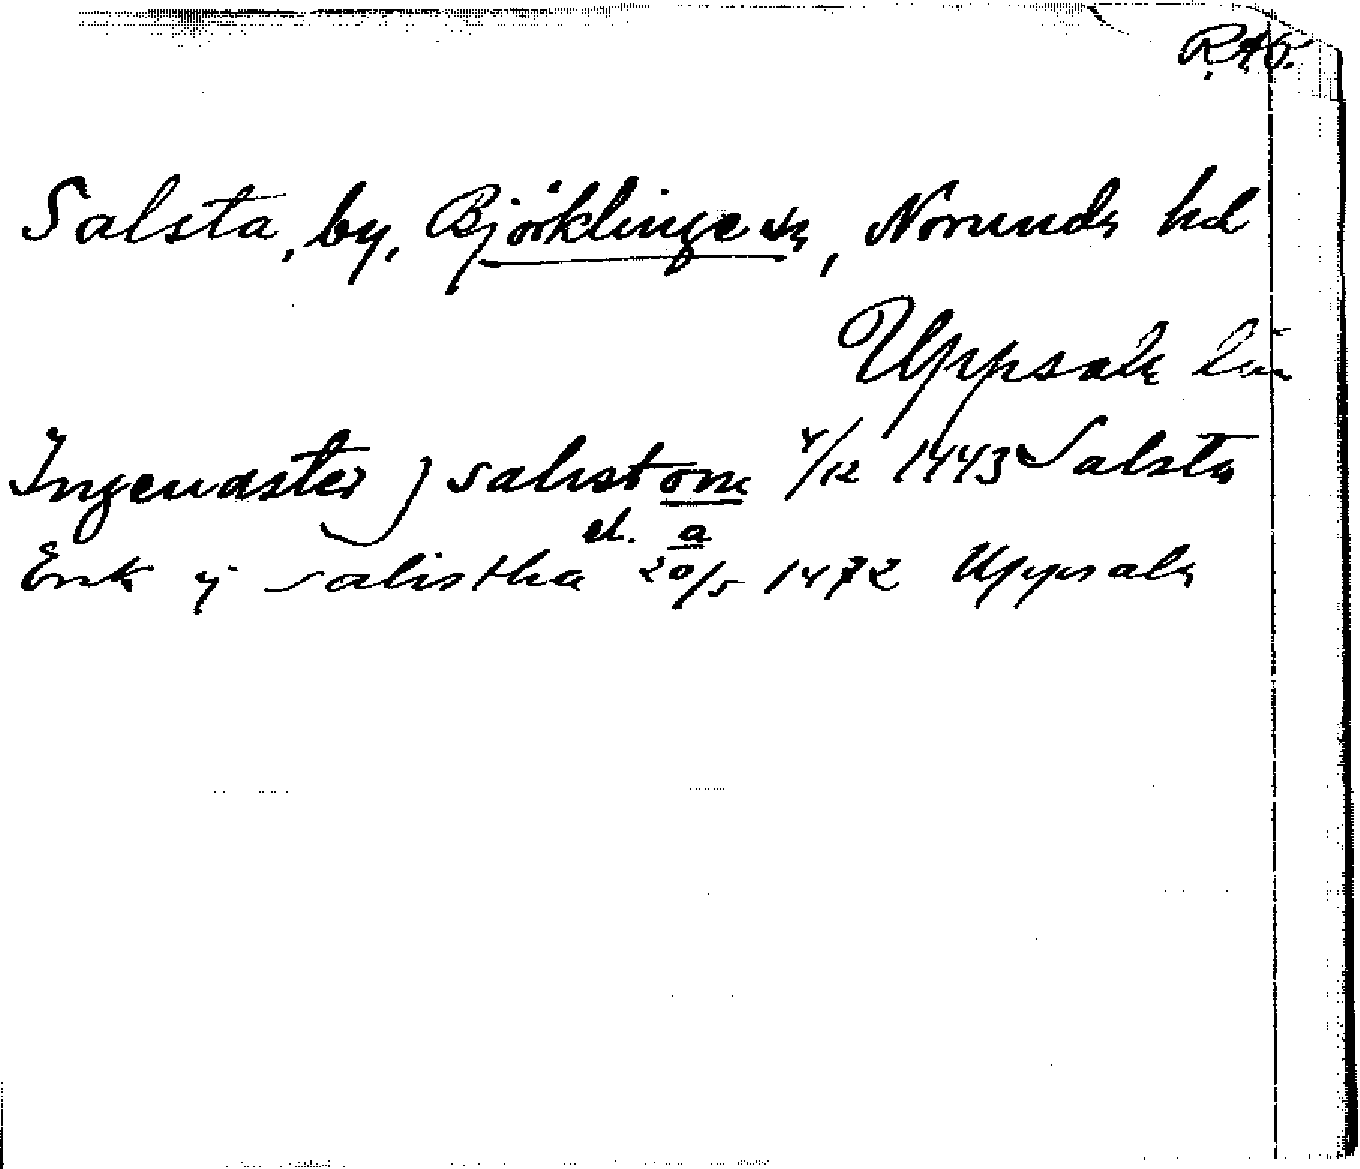 R.A.P.
Salsta, by, Björklinge sn, Norunda hd
Uppsala län
Ingeuaster j salistom 4/12 1443 Salsta
el. a
Erik ij salistha 20/5 1472 Uppsala